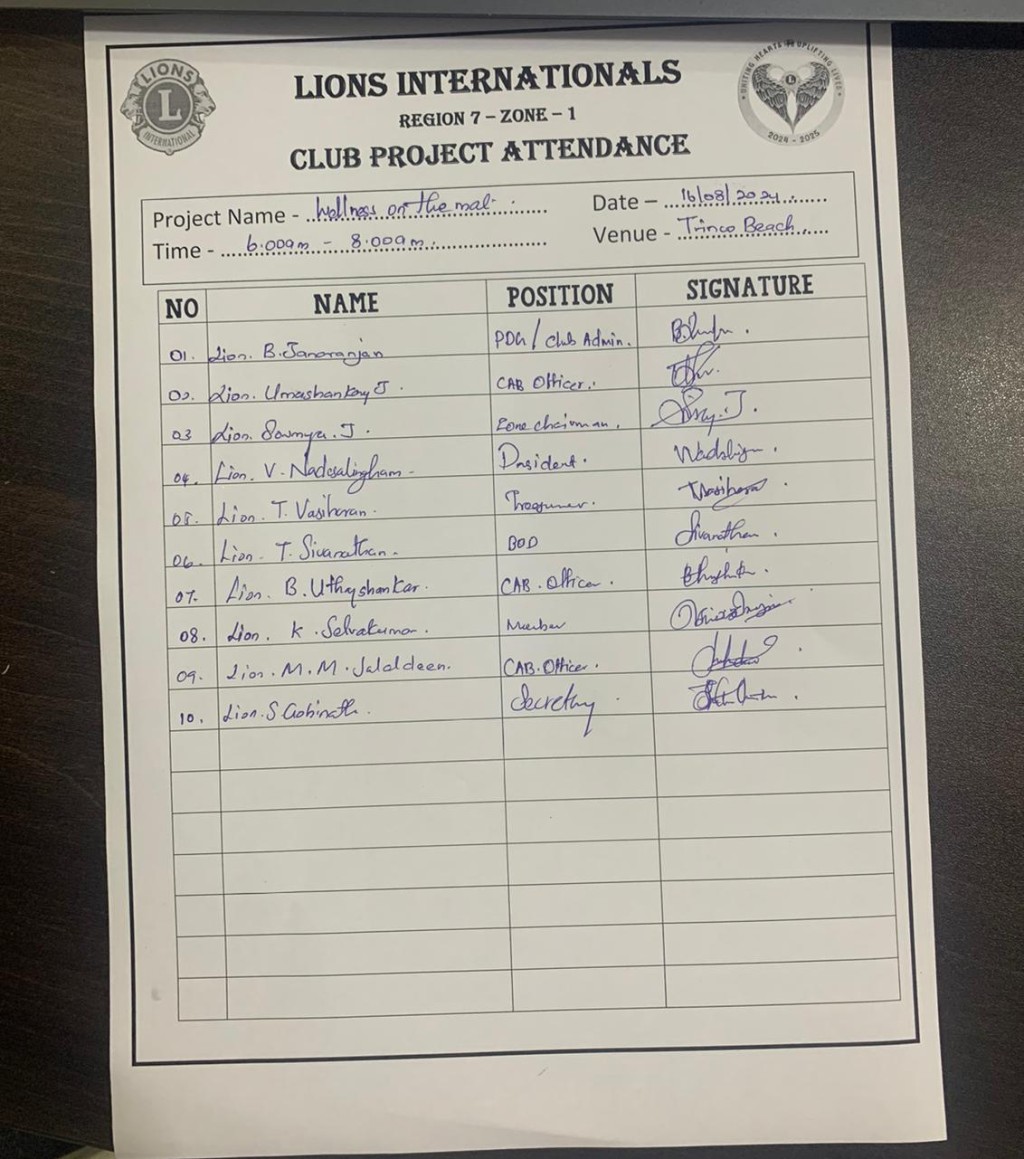 LIONS INTERNATIONAL
UNITING HEARTS UPLIFTING LIVES
2024 - 2025
LIONS INTERNATIONALS
REGION 7 – ZONE – 1
CLUB PROJECT ATTENDANCE
Project Name - Wellness on the mat. Date – 16/08/2024
Time - 6.00am - 8.00am. Venue - Trinco Beach
NO NAME POSITION SIGNATURE
01. Lion. B. Janaranjan PDG / Club Admin.
02. Lion. Umashankary J. CAB Officer.
03 Lion. Sowmya. J. Zone chairman.
04. Lion. V. Nadesalingham. President.
05. Lion. T. Vasiharan. Treasurer.
06. Lion. T. Sivanathan. BOD Sivanathan.
07. Lion. B. Uthayshankar. CAB. Officer.
08. Lion. K. Selvakumar. Member
09. Lion. M. M. Jalaldeen. CAB. Officer.
10. Lion. S Gobinath. Secretary